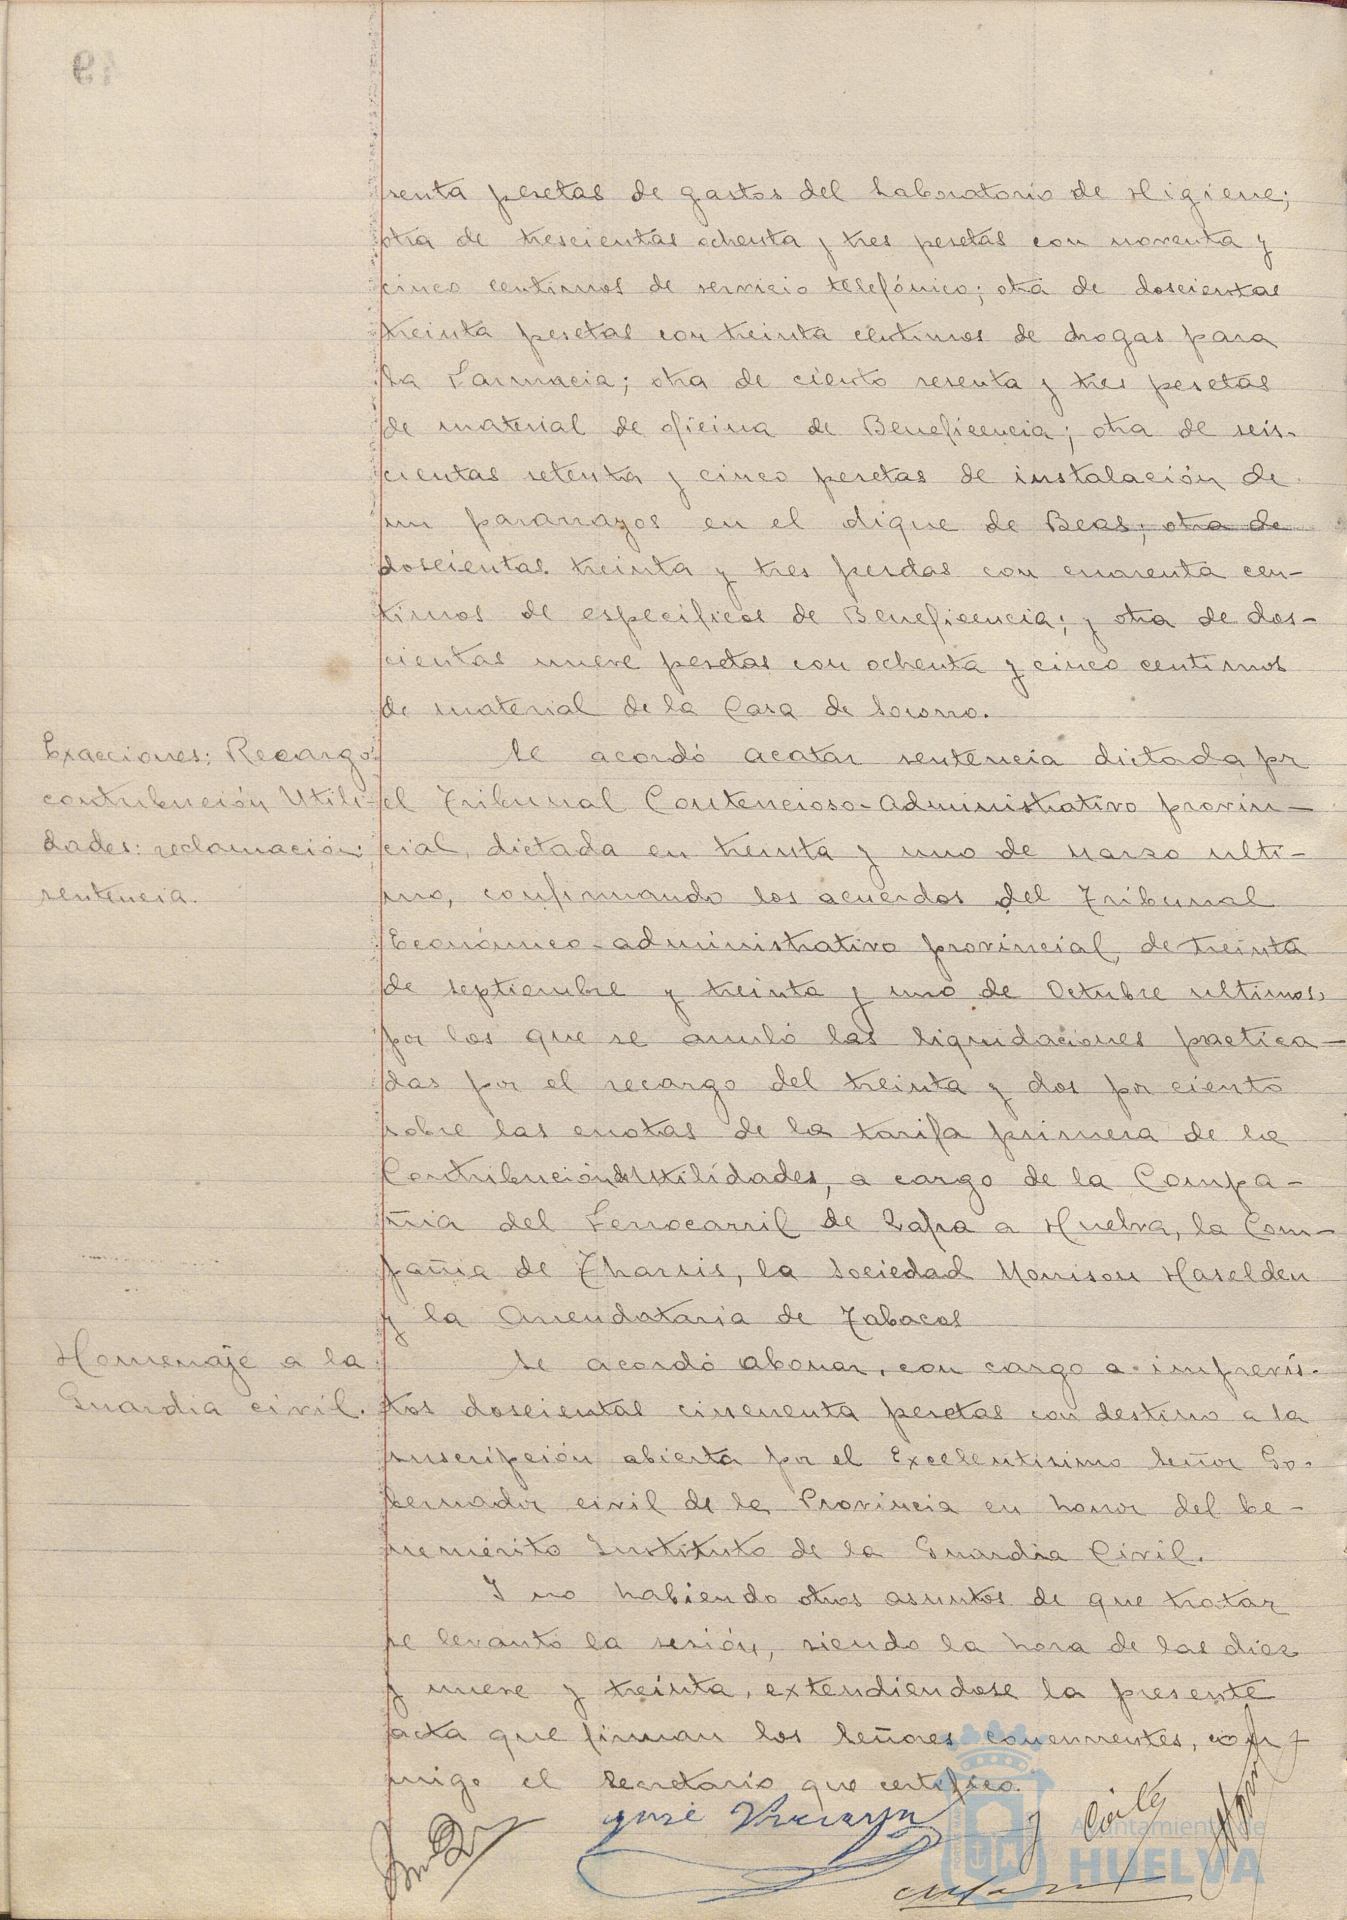 49
senta pesetas de gastos del Laboratorio de Higiene;
otra de trescientas ochenta y tres pesetas con noventa y
cinco centimos de servicio telefónico; otra de doscientas
treinta pesetas con treinta centimos de drogas para
la Farmacia; otra de ciento sesenta y tres pesetas
de material de oficina de Beneficencia; otra de seis-
cientas setenta y cinco pesetas de instalación de
un pararrayos en el dique de Beas; otra de
doscientas treinta y tres pesetas con cuarenta cen-
timos de especificos de Beneficencia; y otra de dos-
cientas nueve pesetas con ochenta y cinco centimos
de material de la Casa de Socorro.
Exacciones: Recargo
contribución Utili-
dades: reclamación:
sentencia.
Se acordó acatar sentencia dictada por
el Tribunal Contencioso-Administrativo provin-
cial, dictada en treinta y uno de marzo ulti-
mo, confirmando los acuerdos del Tribunal
Económico-administrativo provincial, de treinta
de septiembre y treinta y uno de Octubre ultimos,
por los que se anuló las liquidaciones practica-
das por el recargo del treinta y dos por ciento
sobre las cuotas de la tarifa primera de la
Contribución de Utilidades, a cargo de la Compa-
ñia del Ferrocarril de Zafra a Huelva, la Com-
pañia de Tharsis, la Sociedad Morrison Haselden
y la Arrendataria de Tabacos
Homenaje a la
Guardia civil.
Se acordó abonar, con cargo a imprevis-
tos doscientas cincuenta pesetas con destino a la
suscripción abierta por el Excelentisimo Señor Go-
bernador civil de la Provincia en honor del be-
nemérito Instituto de la Guardia Civil.
Y no habiendo otros asuntos de que tratar
se levantó la sesión, siendo la hora de las diez
y nueve y treinta, extendiendose la presente
acta que firman los Señores concurrentes, con-
migo el Secretario que certifico.
José
Ayuntamiento de
HUELVA